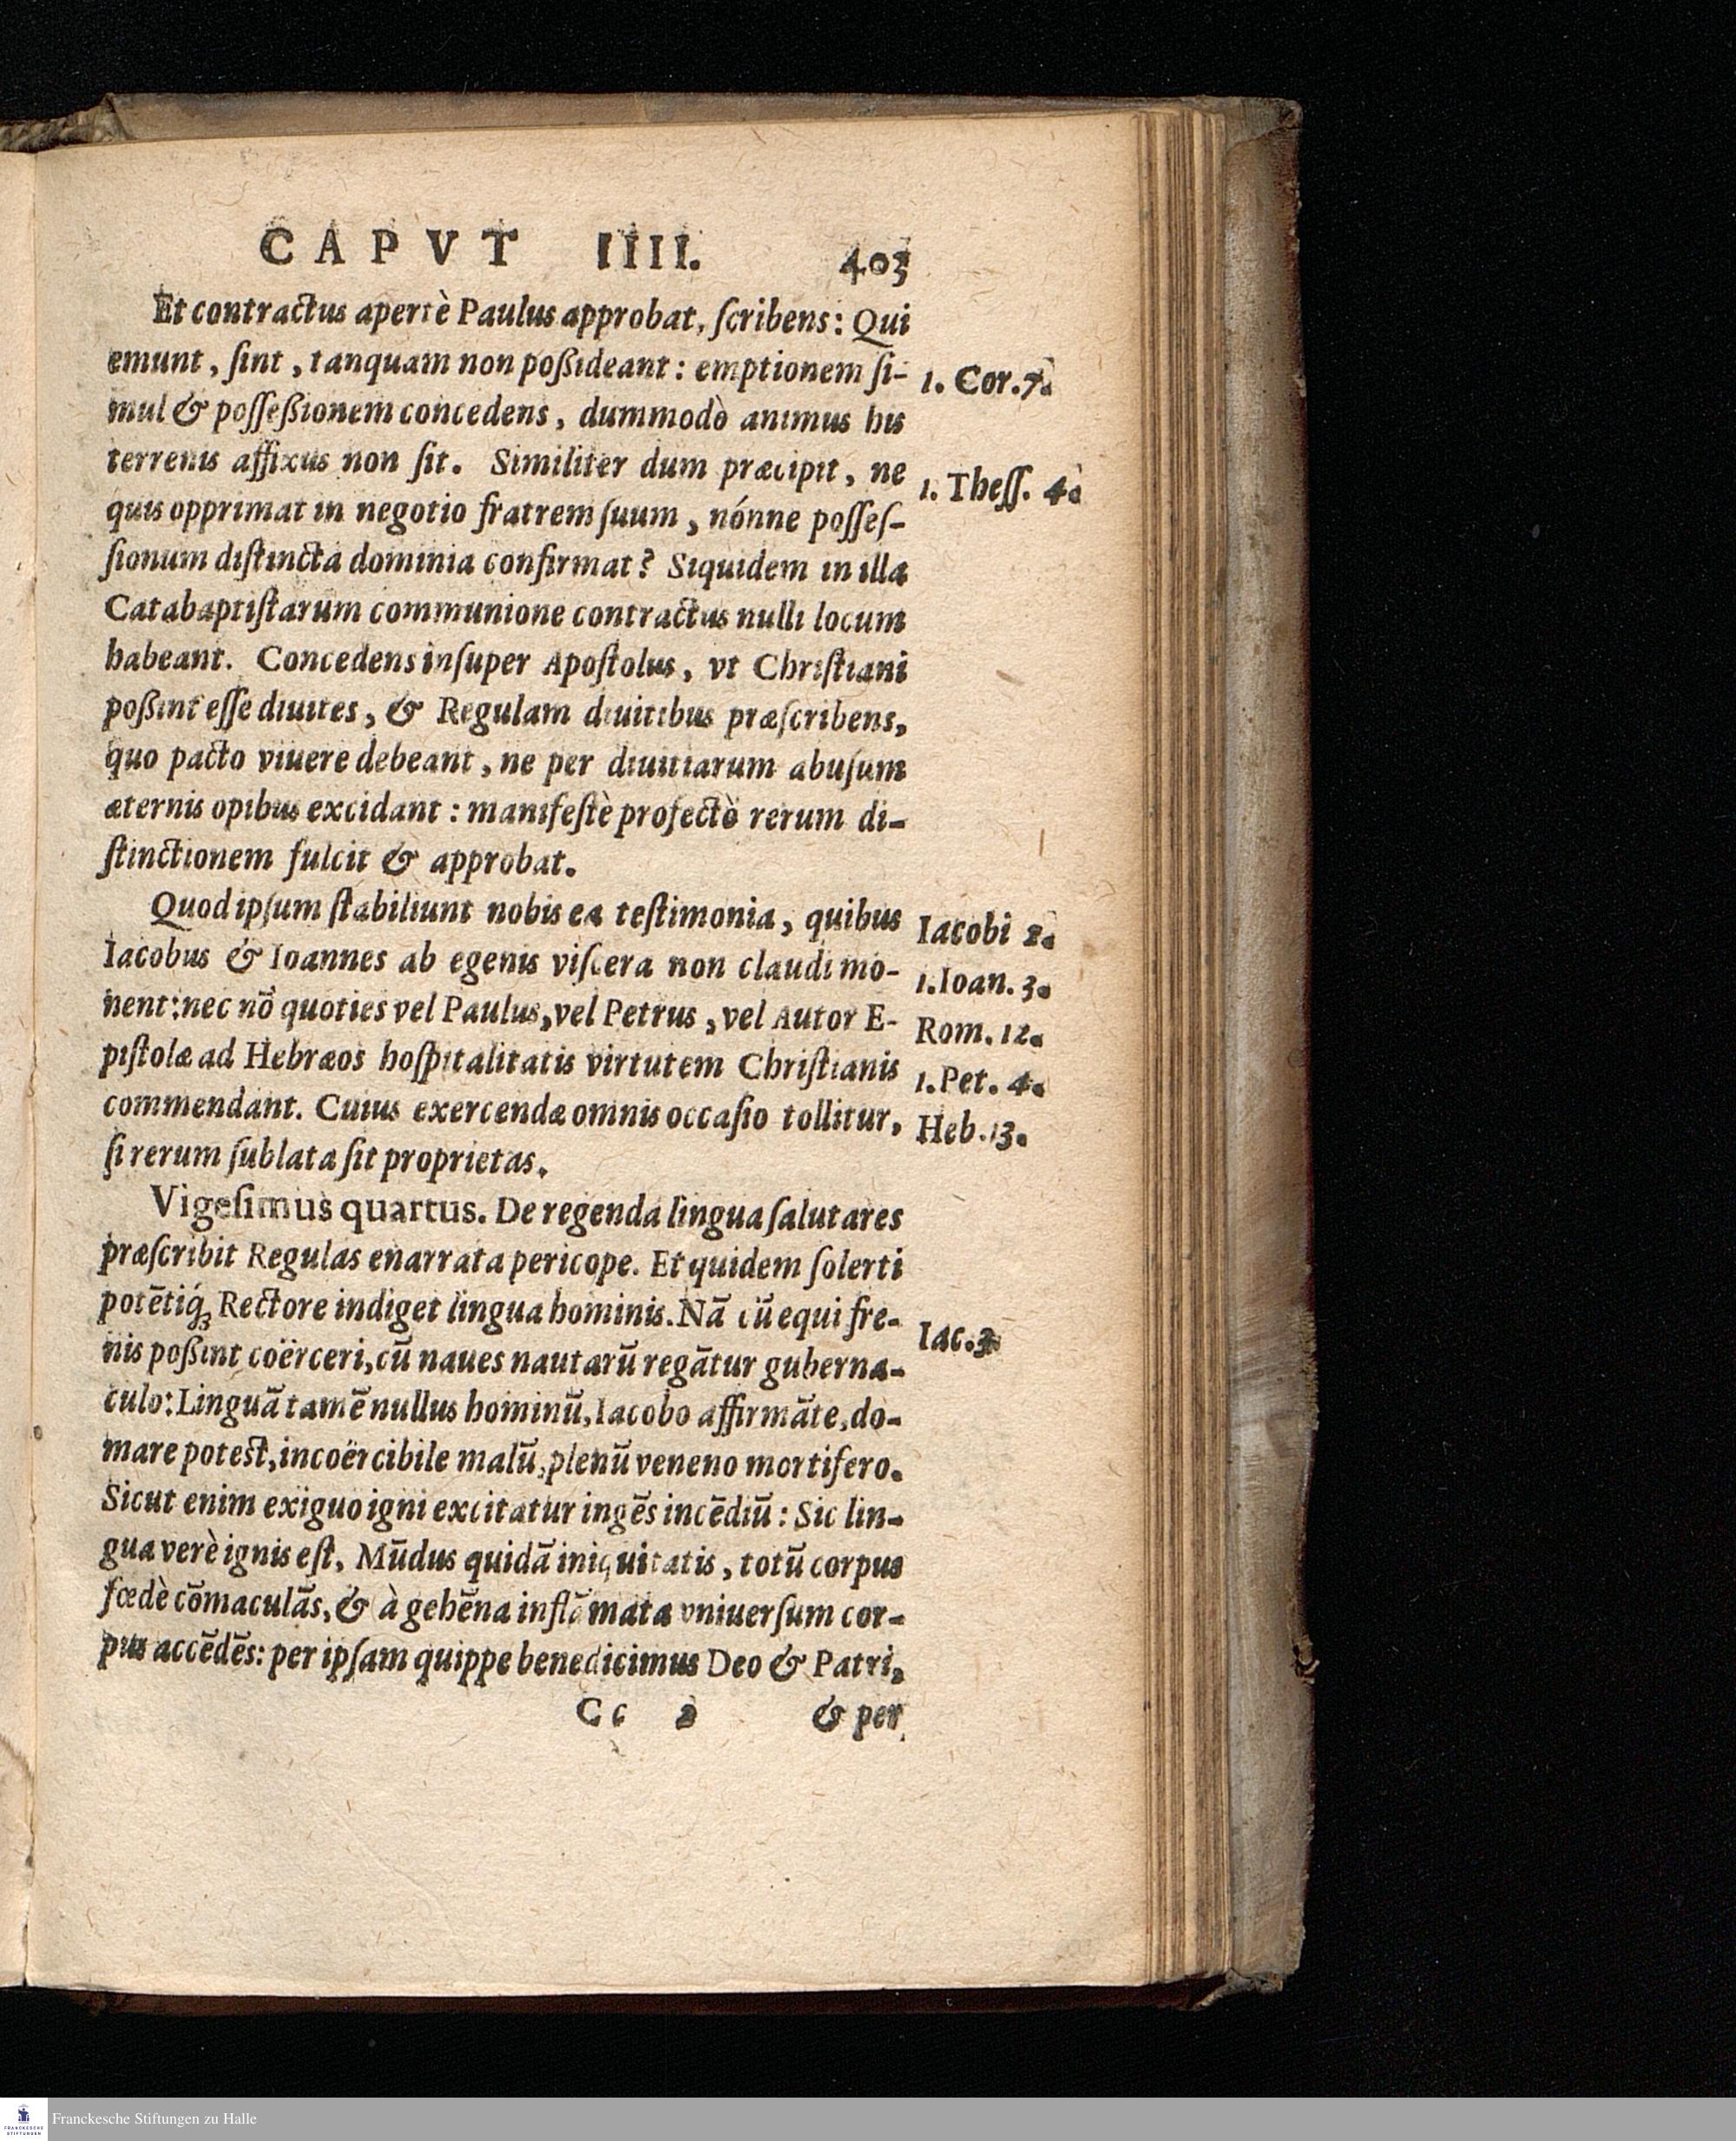 CAPVT IIII. 403
Et contractus apertè Paulus approbat, ſcribens: Qui
emunt, ſint, tanquam non poßideant: emptionem ſi-
1. Cor. 7.
mul & poſſeßionem concedens, dummodò animus his
terrenis affixus non ſit. Similiter dum præcipit, ne
1. Theſſ. 4.
quis opprimat in negotio fratrem ſuum, nónne poſſeſ-
ſionum diſtincta dominia confirmat? Siquidem in illa
Catabaptiſtarum communione contractus nulli locum
habeant. Concedens inſuper Apoſtolus, vt Chriſtiani
poßint eſſe diuites, & Regulam diuitibus præſcribens,
quo pacto viuere debeant, ne per diuitiarum abuſum
æternis opibus excidant: manifeſtè profectò rerum di-
ſtinctionem fulcit & approbat.
Quod ipſum ſtabiliunt nobis ea teſtimonia, quibus
Iacobi 2.
Iacobus & Ioannes ab egenis viſcera non claudi mo-
1. Ioan. 3.
nent: nec nō quoties vel Paulus, vel Petrus, vel Autor E-
Rom. 12.
piſtolæ ad Hebræos hoſpitalitatis virtutem Chriſtianis
1. Pet. 4.
commendant. Cuius exercendæ omnis occaſio tollitur,
Heb. 13.
ſi rerum ſublata ſit proprietas.
Vigeſimus quartus. De regenda lingua ſalutares
præſcribit Regulas enarrata pericope. Et quidem ſolerti
potētiq́ꝫ Rectore indiget lingua hominis. Nā cū equi fre-
Iac. 3
nis poßint coërceri, cū naues nautarū regātur guberna-
culo: Linguā tamē nullus hominū, Iacobo affirmāte, do-
mare poteſt, incoërcibile malū, plenū veneno mortifero.
Sicut enim exiguo igni excitatur ingēs incēdiū: Sic lin-
gua verè ignis eſt, Mūdus quidā iniquitatis, totū corpus
fœdè cōmaculās, & à gehēna inflāmata vniuerſum cor-
pus accēdēs: per ipſam quippe benedicimus Deo & Patri,
Cc 2 & per
Franckesche Stiftungen zu Halle
FRANCKESCHE
STIFTUNGEN